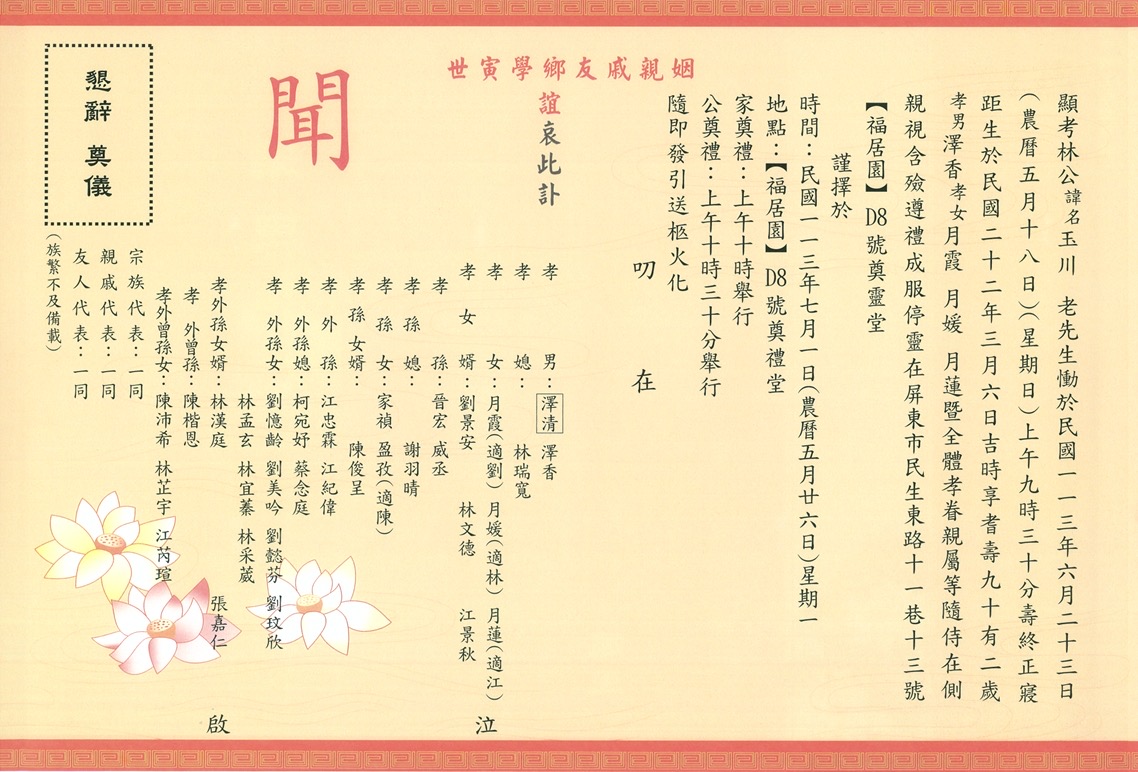 顯考林公諱名玉川　老先生慟於民國一一三年六月二十三日
（農曆五月十八日）（星期日）上午九時三十分壽終正寢
距生於民國二十二年三月六日吉時享耆壽九十有二歲
孝男澤香孝女月霞　月媛　月蓮暨全體孝眷親屬等隨侍在側
親視含殮遵禮成服停靈在屏東市民生東路十一巷十三號
【福居園】D8號奠靈堂
謹擇於
時間：民國一一三年七月一日（農曆五月廿六日）星期一
地點：【福居園】D8號奠禮堂
家奠禮：上午十時舉行
公奠禮：上午十時三十分舉行
隨即發引送柩火化
叨　在
姻親戚友鄉學寅世
誼哀此訃
聞
孝男：澤清　澤香
孝媳：林瑞寬
孝女：月霞（適劉）　月媛（適林）　月蓮（適江）　泣
孝女婿：劉景安　林文德　江景秋
孝孫：晉宏　威丞
孝孫媳：謝羽晴
孝孫女：家禎　盈孜（適陳）
孝孫女婿：陳俊呈
孝外孫：江忠霖　江紀偉
孝外孫媳：柯宛妤　蔡念庭
孝外孫女：劉憶齡　劉美吟　劉懿芬　劉玟欣
林孟玄　林宜蓁　林采葳
孝外孫女婿：林漢庭　張嘉仁　啟
孝外曾孫：陳楷恩
孝外曾孫女：陳沛希　林芷宇　江芮瑄
宗族代表：一同
親戚代表：一同
友人代表：一同
（族繁不及備載）
懇辭　奠儀